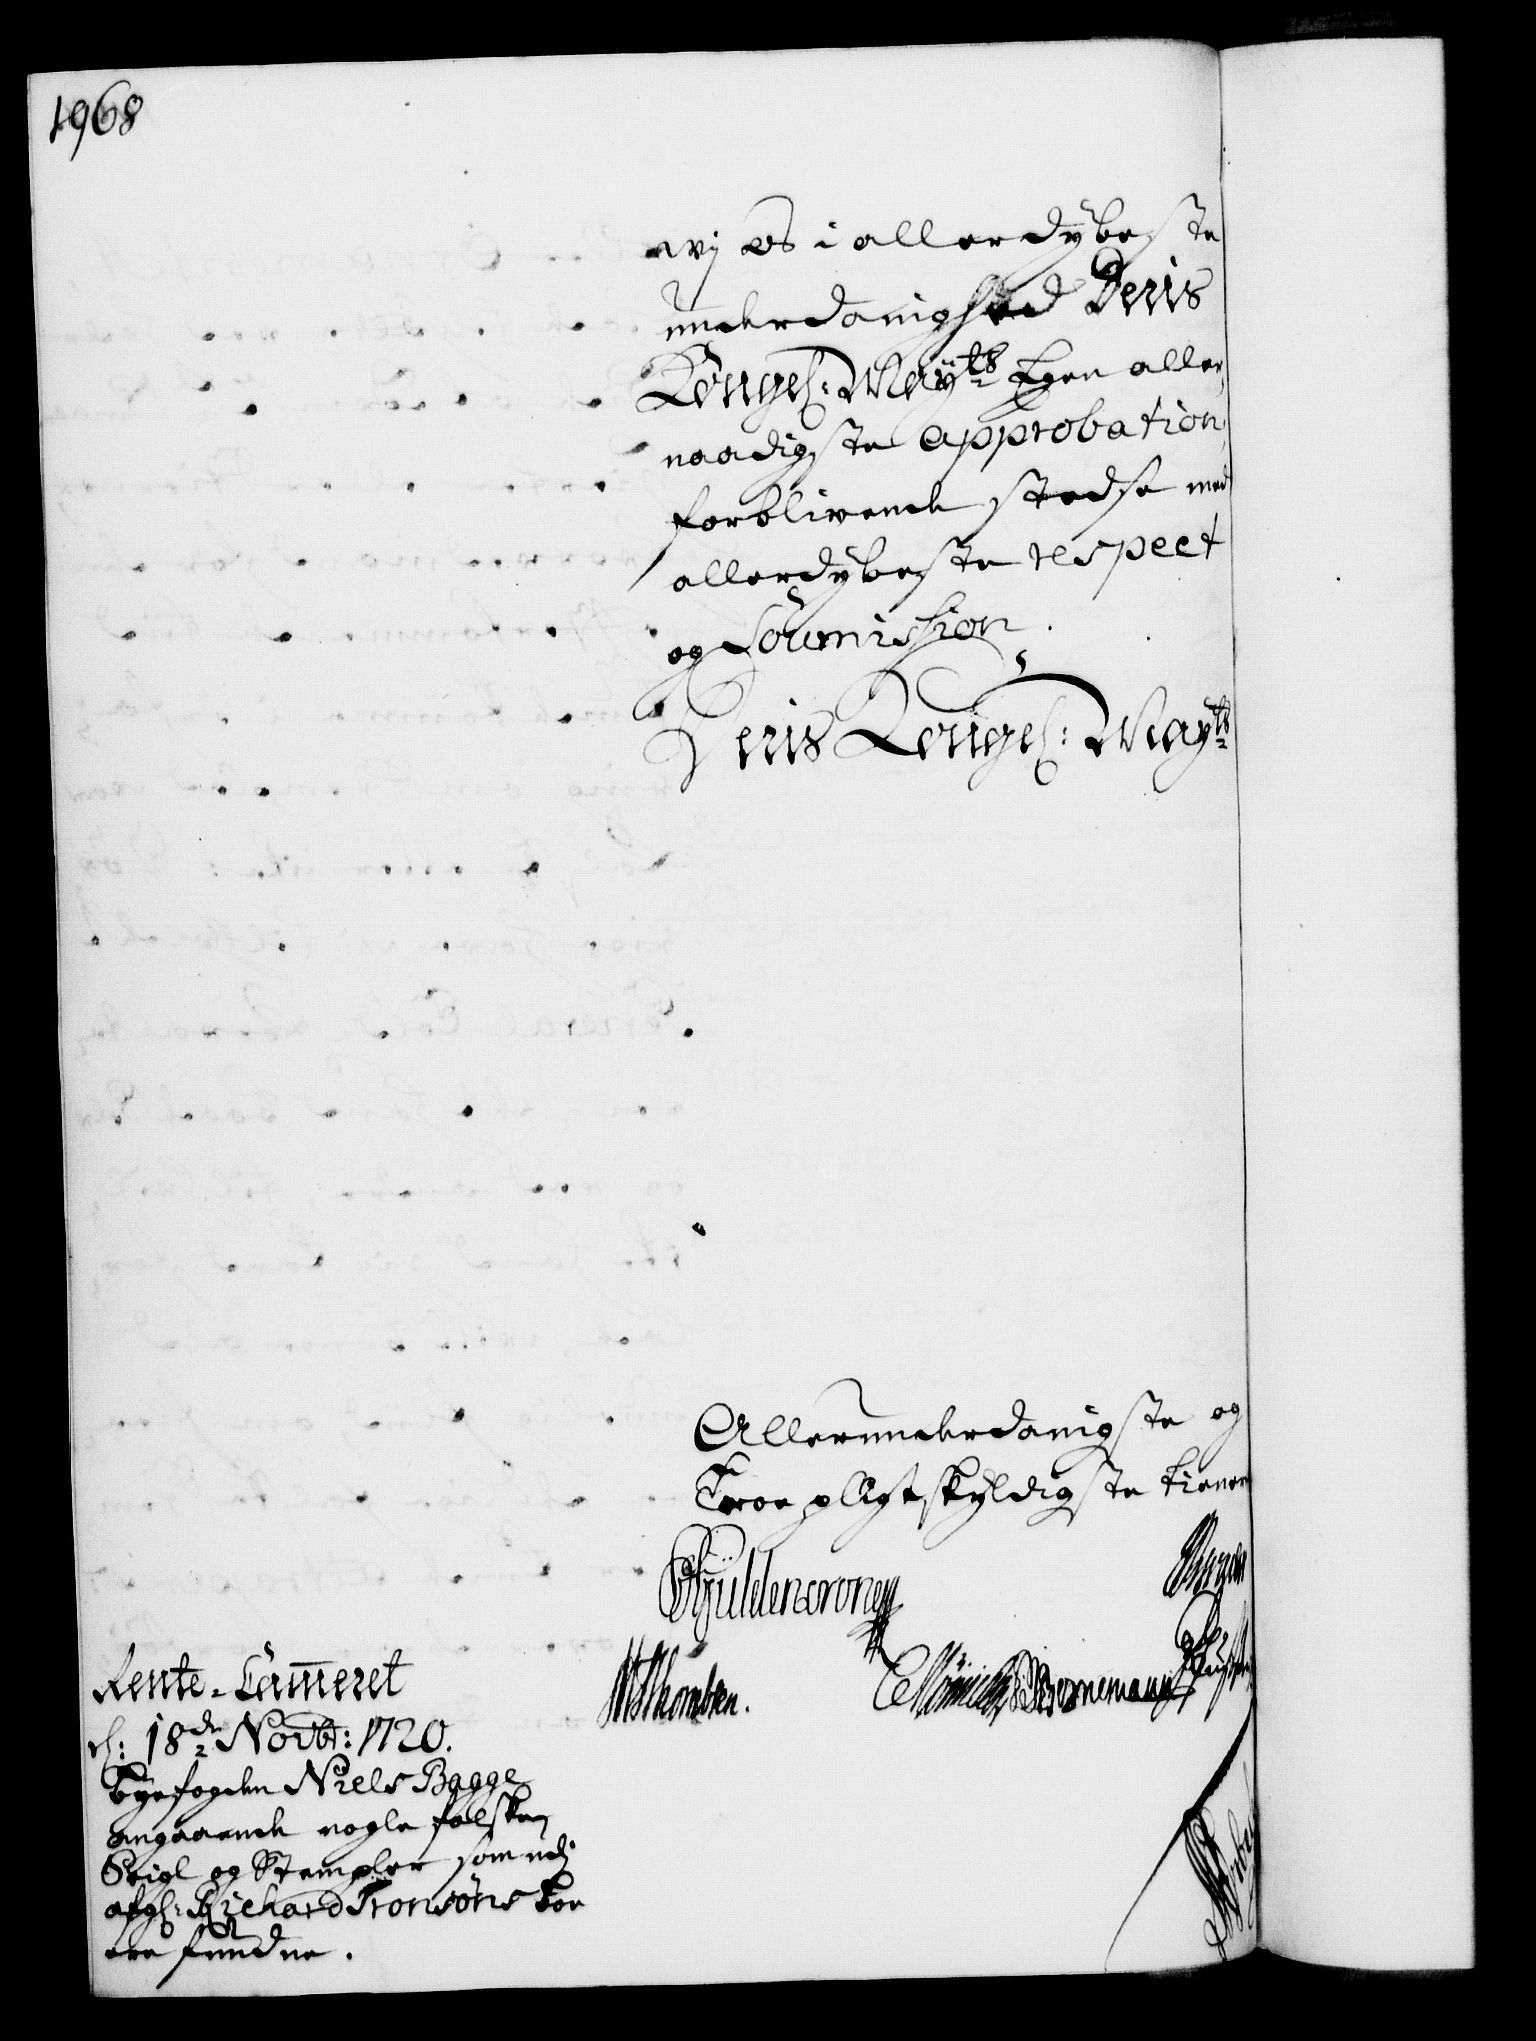 1968
wj os i allerdybeste
underdanighed Deris
Kongel: Mayts Egen aller,
naadigste approbation,
forblivende stedse med
allerdybeste respect
og Soumission.
Deris Kongel: Mayts
Allerunderdanigste og
Troe pligtskyldigste tienere
Gyldencrone
WThomsen.
Bornemann
Rente-Cammeret
d: 18de Novbr: 1720.
Byefogden Niels Bagge
angaaende nogle falske
Seigl og Stempler som udj
afgl: Richard Tronsöns boe
ere fundne.